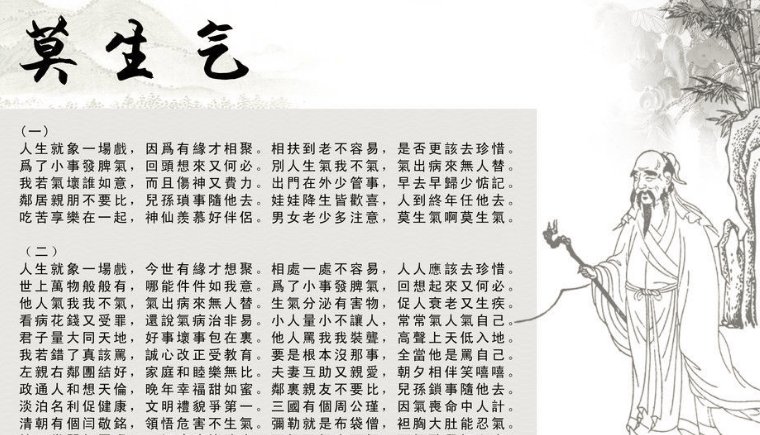 莫生气
(一)
人生就象一場戲，因爲有緣才相聚。相扶到老不容易，是否更該去珍惜。
爲了小事發脾氣，回頭想來又何必。別人生氣我不氣，氣出病來無人替。
我若氣壞誰如意，而且傷神又費力。出門在外少管事，早去早歸少惦記。
鄰居親朋不要比，兒孫瑣事隨他去。娃娃降生皆歡喜，人到終年任他去。
吃苦享樂在一起，神仙羨慕好伴侶。男女老少多注意，莫生氣啊莫生氣。
(二)
人生就象一場戲，今世有緣才想聚。相處一處不容易，人人應該去珍惜。
世上萬物般般有，哪能件件如我意。爲了小事發脾氣，回想起來又何必。
他人氣我我不氣，氣出病來無人替。生氣分泌有害物，促人衰老又生疾。
看病花錢又受罪，還說氣病治非易。小人量小不讓人，常常氣人氣自己。
君子量大同天地，好事壞事包在裏。他人罵我我裝聾，高聲上天低入地。
我若錯了真該罵，誠心改正受教育。要是根本沒那事，全當他是罵自己。
左親右鄰團結好，家庭和睦樂無比。夫妻互助又親愛，朝夕相伴笑嘻嘻。
政通人和想天倫，晚年幸福甜如蜜。鄰裏親友不要比，兒孫鎖事隨他去。
淡泊名利促健康，文明禮貌爭第一。三國有個周公瑾，因氣喪命中人計。
清朝有個閆敬銘，領悟危害不生氣。彌勒就是布袋僧，袒胸大肚能忍氣。